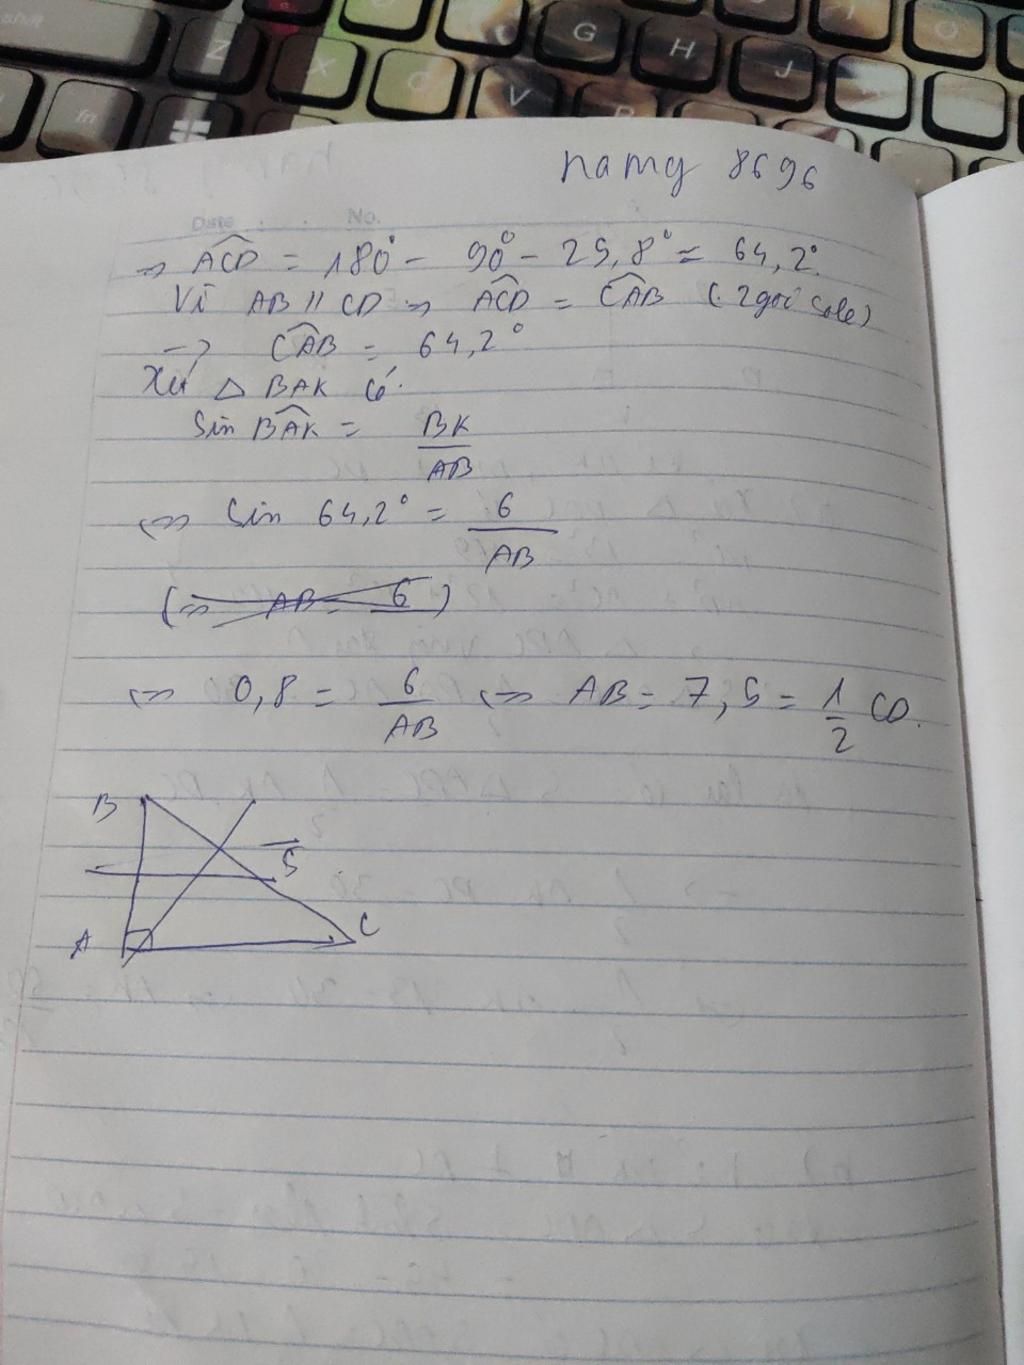 shift Z X C V B G H J I O
fn
namy 8696
Date : . . No.
=> ACD = 180° - 90° - 25,8° = 64,2°.
Vì AB // CD => ACD = CAB (2 góc sole)
-> CAB = 64,2°
Xét △ BAK có.
Sin BAK = BK / AB
<=> Sin 64,2° = 6 / AB
(=> AB = 6)
<=> 0,8 = 6 / AB <=> AB = 7,5 = 1/2 CD.
B
5
A C